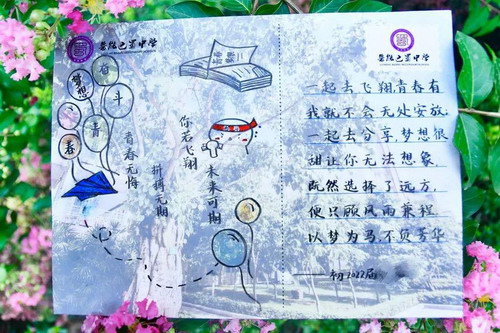 鲁能巴蜀中学
奋
梦想
斗
青
春
青春无悔
拼搏无期
你若飞翔
未来可期
鲁能巴蜀中学
一起去飞翔青春有
我就不会无处安放.
一起去分享,梦想很
甜让你无法想象,
既然选择了远方,
便只顾风雨兼程
以梦为马,不负芳华
——初2022届